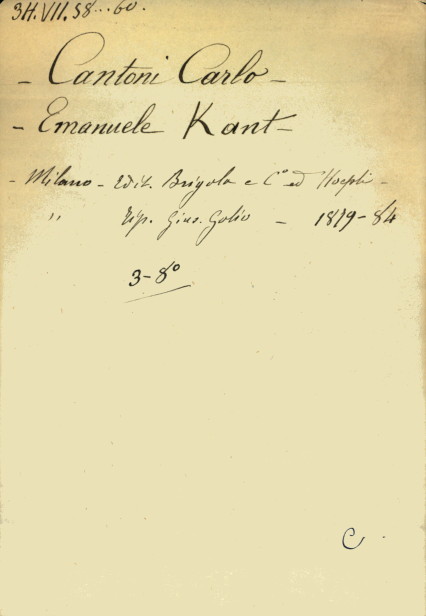 3H.VII.58...60.
- Cantoni Carlo -
- Emanuele Kant -
- Milano - Edit. Brigola e C° ed Hoepli -
" Tip. Gius. Golio - 1879-84
3-8°
C.